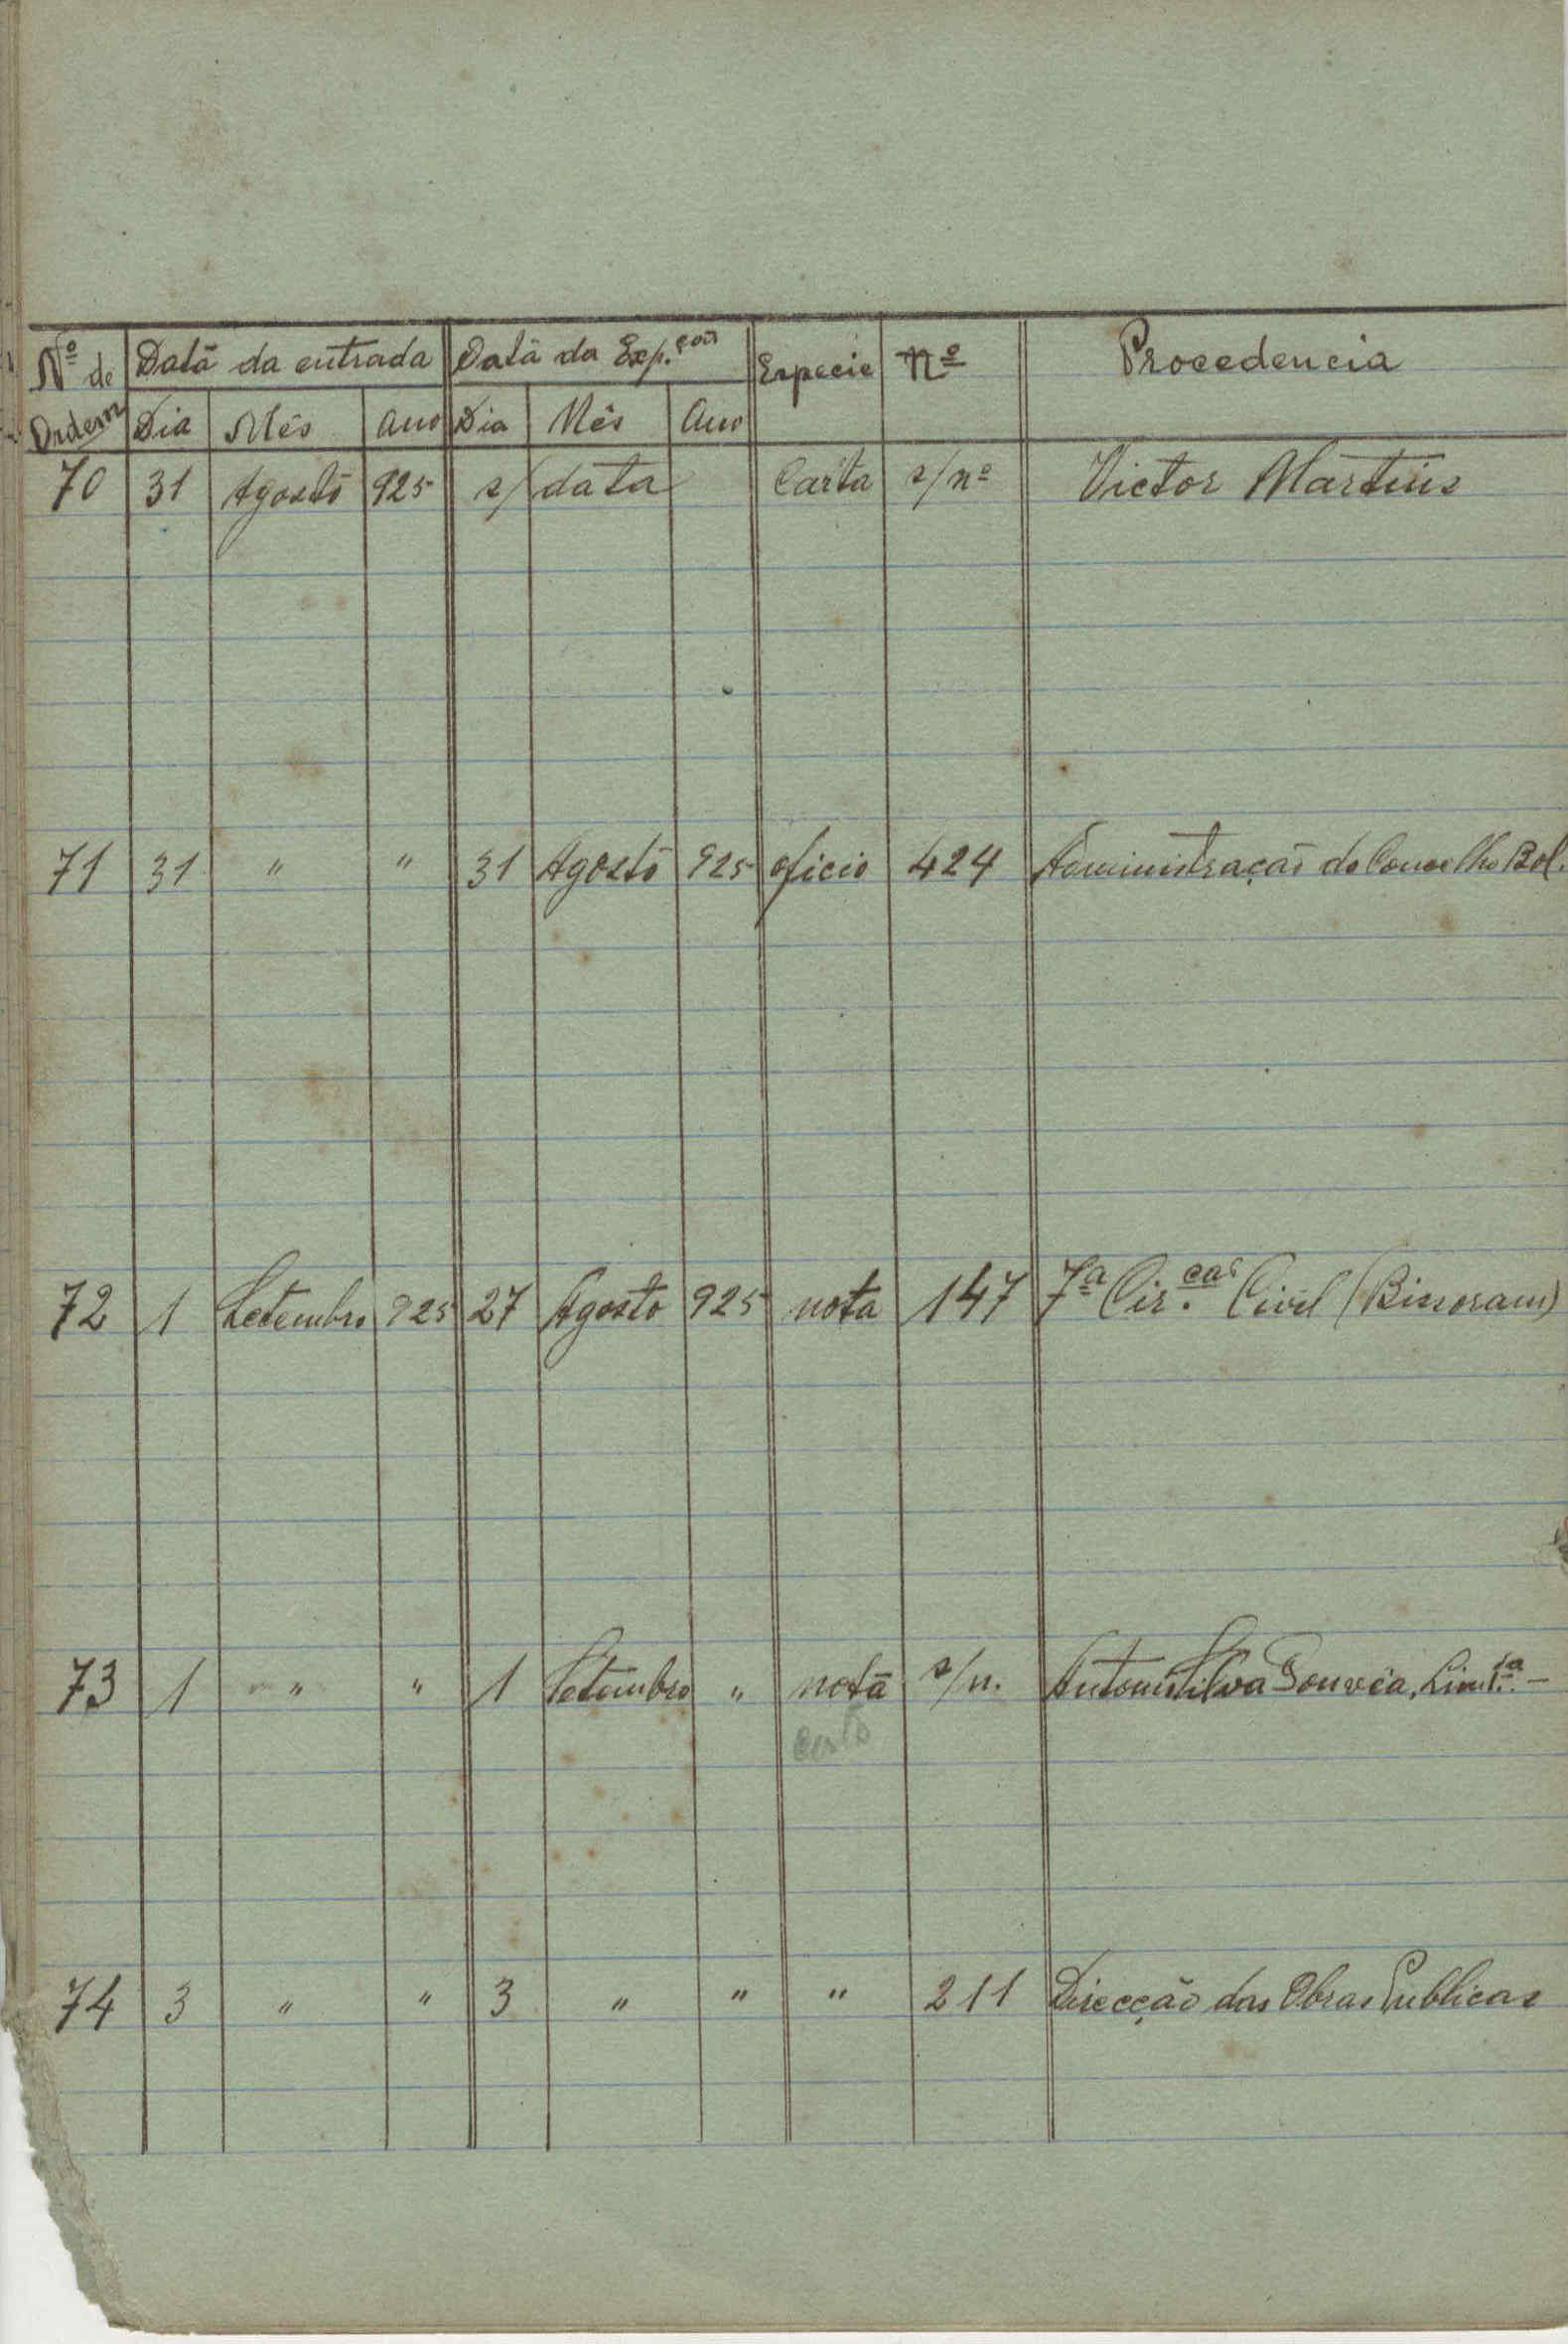 Nº de Ordem Data da entrada Data da Exp.ção Especie Nº Procedencia
Dia Mês Ano Dia Mês Ano
70 31 Agosto 925 s/ data Carta s/nº Victor Martins
71 31 " " 31 Agosto 925 oficio 424 Administração do Concelho Bol.
72 1 Setembro 925 27 Agosto 925 nota 147 7ª Cir.cão Civil (Bissoram)
73 1 " " 1 Setembro " nota s/n. Antonio Silva Gouvêa, Limt.ª -
74 3 " " 3 " " " 211 Direcção das Obras Publicas